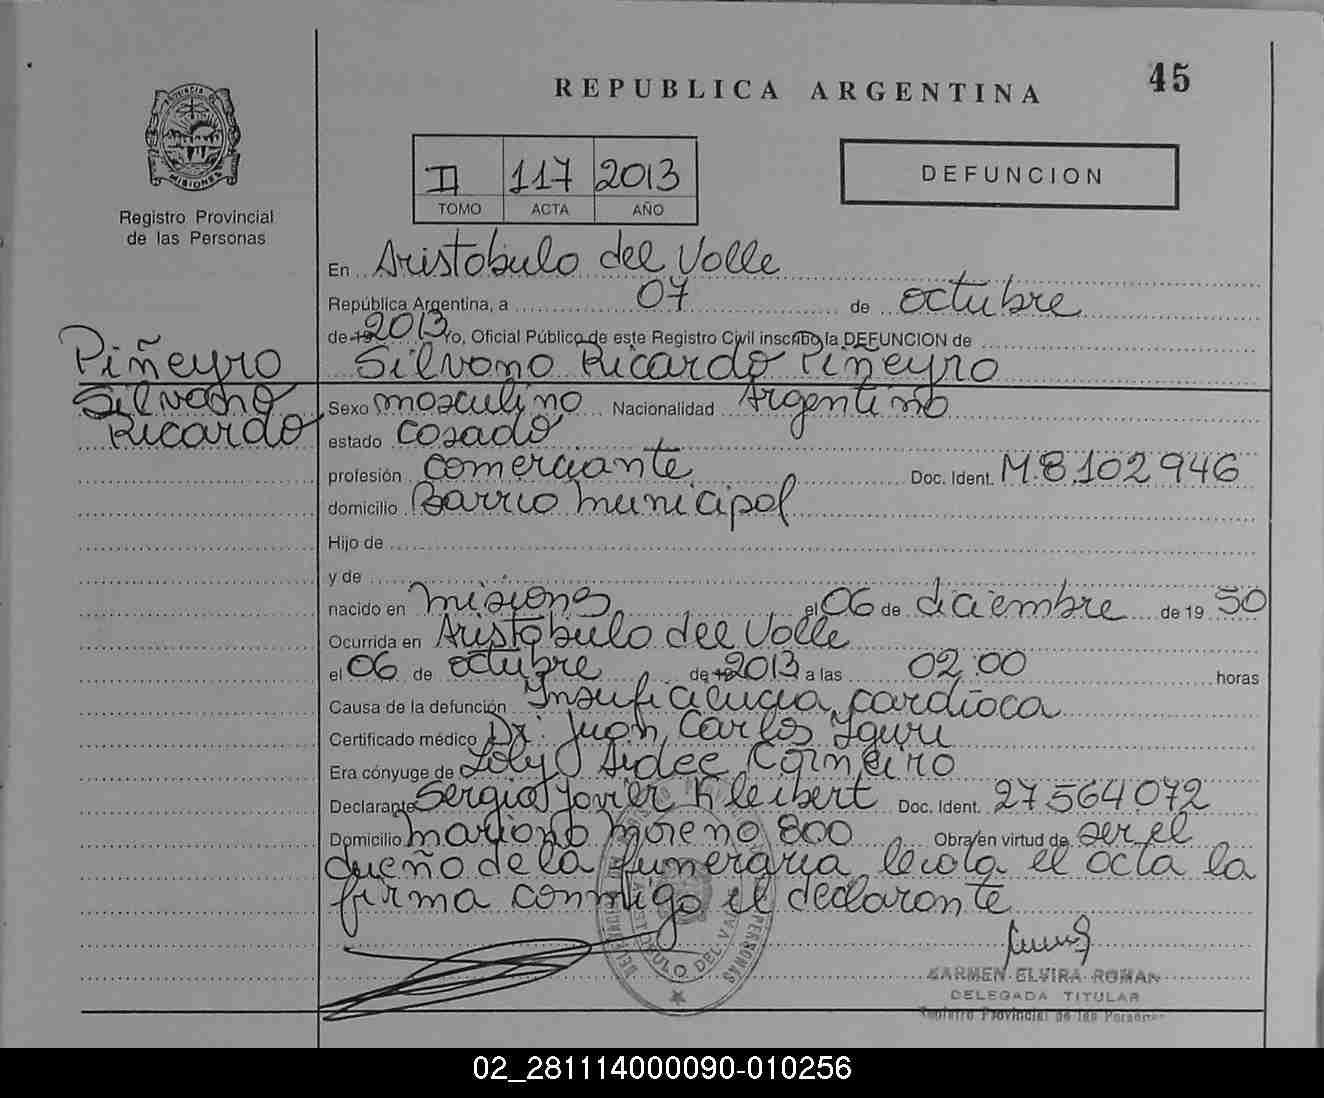 45
REPUBLICA ARGENTINA
PROVINCIA D
MISIONES
Registro Provincial
de las Personas
II 117 2013
TOMO ACTA AÑO
DEFUNCION
En Aristobulo del Valle
República Argentina, a 07 de octubre
de 19 2013 Yo, Oficial Público de este Registro Civil inscribo la DEFUNCION de
Silvano Ricardo Piñeyro
Piñeyro
Silvano
Ricardo
Sexo masculino Nacionalidad Argentino
estado casado
profesión comerciante Doc. Ident. M8.102946
domicilio Barrio Municipal
Hijo de
y de
nacido en Misiones el 06 de diciembre de 19 50
Ocurrida en Aristobulo del Valle
el 06 de octubre de 19 2013 a las 02:00 horas
Causa de la defunción Insuficiencia cardíaca
Certificado médico Dr. Juan Carlos
Era cónyuge de Aidee
Declarante Sergio Javier Kleibert Doc. Ident. 27.564072
Domicilio Mariano Moreno 800 Obra/en virtud de ser el
dueño de la funeraria leída el acta la
firma conmigo el declarante
DEL VALLE
PERSONAS
CARMEN ELVIRA ROMAN
DELEGADA TITULAR
Registro Provincial de las Personas
02_281114000090-010256